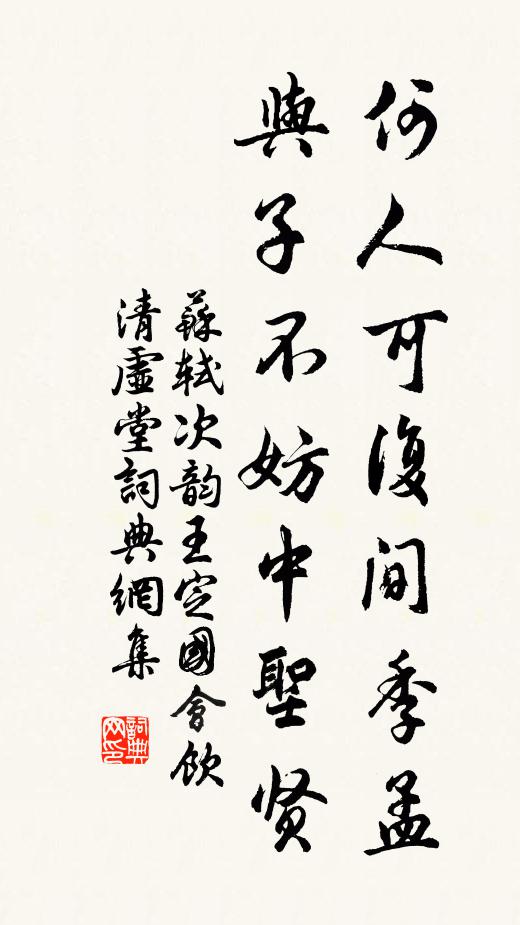 何人可復間季孟
與子不妨中聖賢
蘇軾次韵王定國會飲
清虛堂詞典網集
詞典网印